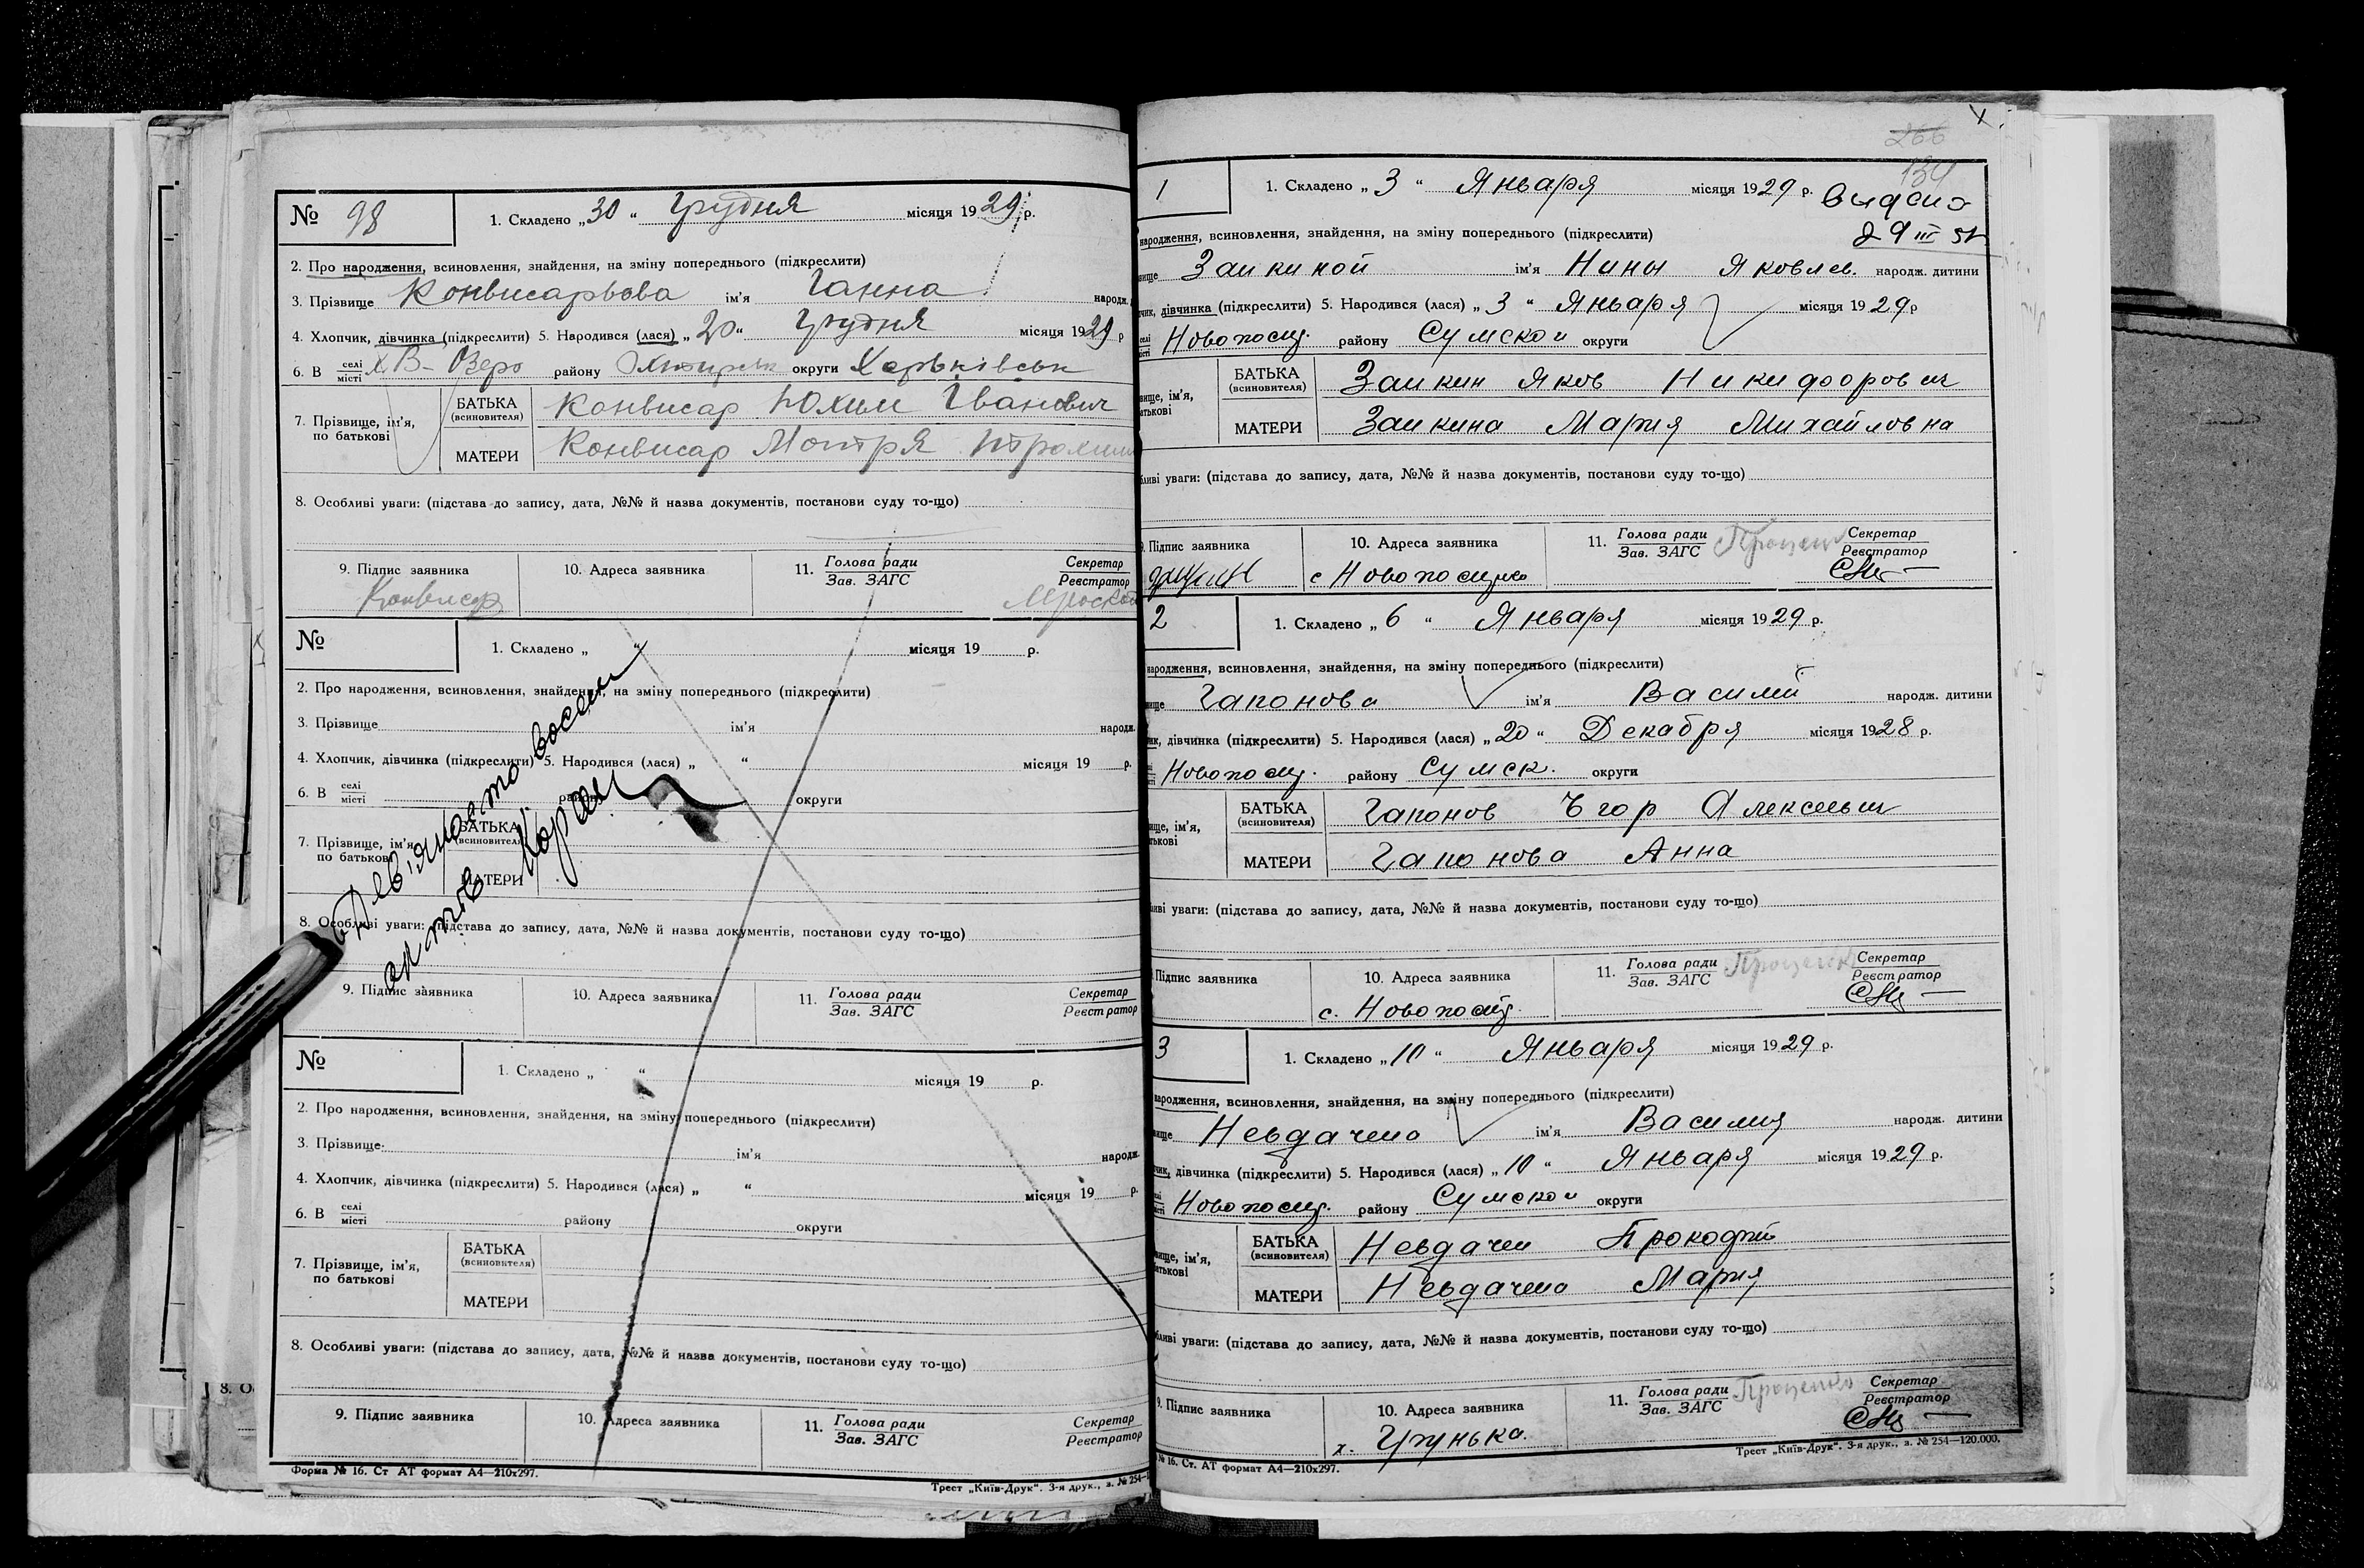 № 98
1. Складено „30“ Грудня місяця 1929 р.
2. Про народження, всиновлення, знайдення, на зміну попереднього (підкреслити)
3. Прізвище Конвисарьова ім'я Ганна народж.
4. Хлопчик, дівчинка (підкреслити) 5. Народився (лася) „20“ Грудня місяця 1929 р
6. В селі місті х В-Озеро району округи Харьківськ
7. Прізвище, ім'я, по батькові
БАТЬКА (всиновителя) Конвисар Юхим Іванович
МАТЕРИ Конвисар Мотря
8. Особливі уваги: (підстава до запису, дата, №№ й назва документів, постанови суду то-що)
9. Підпис заявника
10. Адреса заявника
11. Голова ради Зав. ЗАГС
Секретар Реєстратор
Конвисар
№
1. Складено „ “ місяця 19 р.
2. Про народження, всиновлення, знайдення, на зміну попереднього (підкреслити)
3. Прізвище ім'я народж.
4. Хлопчик, дівчинка (підкреслити) 5. Народився (лася) „ “ місяця 19 р.
6. В селі місті району округи
7. Прізвище, ім'я, по батькові
БАТЬКА (всиновителя)
МАТЕРИ
Дев'яносто восем
актів
8. Особливі уваги: (підстава до запису, дата, №№ й назва документів, постанови суду то-що)
9. Підпис заявника
10. Адреса заявника
11. Голова ради Зав. ЗАГС
Секретар Реєстратор
№
1. Складено „ “ місяця 19 р.
2. Про народження, всиновлення, знайдення, на зміну попереднього (підкреслити)
3. Прізвище ім'я народж.
4. Хлопчик, дівчинка (підкреслити) 5. Народився (лася) „ “ місяця 19 р.
6. В селі місті району округи
7. Прізвище, ім'я, по батькові
БАТЬКА (всиновителя)
МАТЕРИ
8. Особливі уваги: (підстава до запису, дата, №№ й назва документів, постанови суду то-що)
9. Підпис заявника
10. Адреса заявника
11. Голова ради Зав. ЗАГС
Секретар Реєстратор
Форма № 16. Ст АТ формат А4—210х297.
Трест „Київ-Друк“. 3-я друк., з. № 254—1
266
134
1
1. Складено „3“ Января місяця 1929 р.
выдано
29 III 51
народження, всиновлення, знайдення, на зміну попереднього (підкреслити)
вище Заикиной ім'я Нины Яковлев. народж. дитини
чик, дівчинка (підкреслити) 5. Народився (лася) „3“ Января місяця 1929 р
селі місті Новопосщ. району Сумской округи
вище, ім'я, атькові
БАТЬКА (всиновителя) Заикин Яков Никифорович
МАТЕРИ Заикина Мария Михайловна
ливі уваги: (підстава до запису, дата, №№ й назва документів, постанови суду то-що)
9. Підпис заявника
10. Адреса заявника
11. Голова ради Зав. ЗАГС Проценко
Секретар Реєстратор
2
1. Складено „6“ Января місяця 1929 р.
народження, всиновлення, знайдення, на зміну попереднього (підкреслити)
вище Гапонова ім'я Василий народж. дитини
чик, дівчинка (підкреслити) 5. Народився (лася) „20“ Декабря місяця 1928 р.
Новопосщ. району Сумск. округи
вище, ім'я, атькові
БАТЬКА (всиновителя) Гапонов Егор Алексеевич
МАТЕРИ Гапонова Анна
ливі уваги: (підстава до запису, дата, №№ й назва документів, постанови суду то-що)
Підпис заявника
10. Адреса заявника
11. Голова ради Зав. ЗАГС Проценко
Секретар Реєстратор
с. Новопосщ.
3
1. Складено „10“ Января місяця 1929 р.
народження, всиновлення, знайдення, на зміну попереднього (підкреслити)
вище Невдачина ім'я Василия народж. дитини
чик, дівчинка (підкреслити) 5. Народився (лася) „10“ Января місяця 1929 р.
Новопосщ. району Сумской округи
вище, ім'я, атькові
БАТЬКА (всиновителя) Невдачин Прокофий
МАТЕРИ Невдачина Мария
ливі уваги: (підстава до запису, дата, №№ й назва документів, постанови суду то-що)
9. Підпис заявника
10. Адреса заявника
11. Голова ради Зав. ЗАГС Проценко
Секретар Реєстратор
№ 16. Ст. АТ формат А4—210х297.
Трест „Київ-Друк“. 3-я друк., з. № 254—120.000.